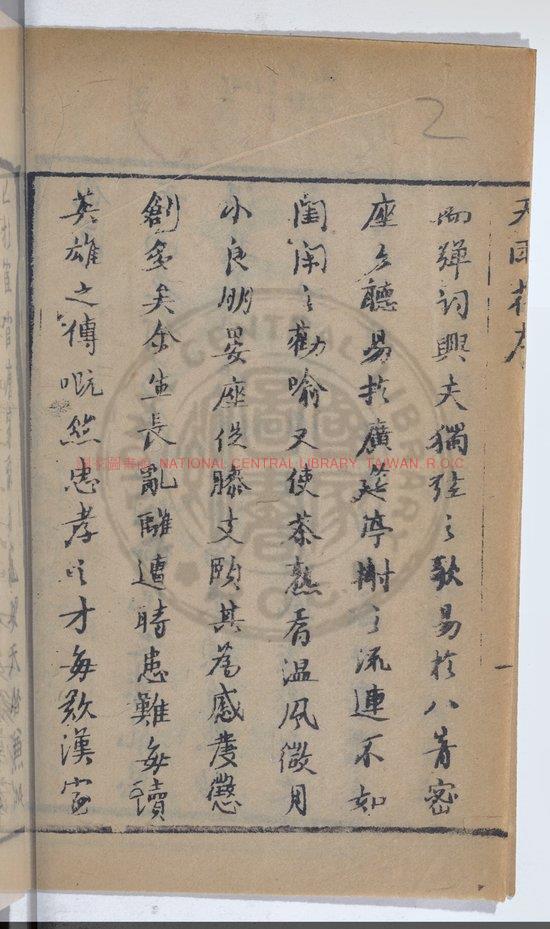 2
天雨花序
而彈詞興夫獨弦之歌易於八音密
座之聽易於廣筵亭榭之流連不如
閨闈之勸喻又使茶熟香温風微月
小良朋宴座促膝支頤其為感發懲
創多矣余生長亂離遭時患難每讀
英雄之傳慨然忠孝之才每歎漢室
國家圖書館 NATIONAL CENTRAL LIBRARY, TAIWAN, R.O.C